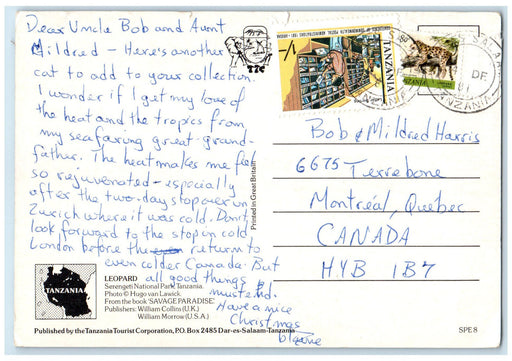 Dear Uncle Bob and Aunt
Mildred - Here's another
cat to add to your collection.
I wonder if I get my love of
the heat and the tropics from
my seafaring great-grand-
father. The heat makes me feel
so rejuvenated - especially
after the two-day stopover in
Zurich where it was cold. Don't
look forward to the stop in cold
London before the return to
even colder Canada. But
all good things
must end.
Have a nice
Christmas
Bob & Mildred Harris
6675 Terrebonne
Montréal, Quebec
CANADA
H4B 1B7
TANZANIA
1/-
TANZANIA
DE
81
TANZANIA
Printed in Great Britain
TANZANIA
LEOPARD
Serengeti National Park, Tanzania.
Photo © Hugo van Lawick.
From the book 'SAVAGE PARADISE'
Publishers: William Collins (U.K.)
William Morrow (U.S.A.)
Published by the Tanzania Tourist Corporation, P.O. Box 2485 Dar-es-Salaam-Tanzania
SPE 8